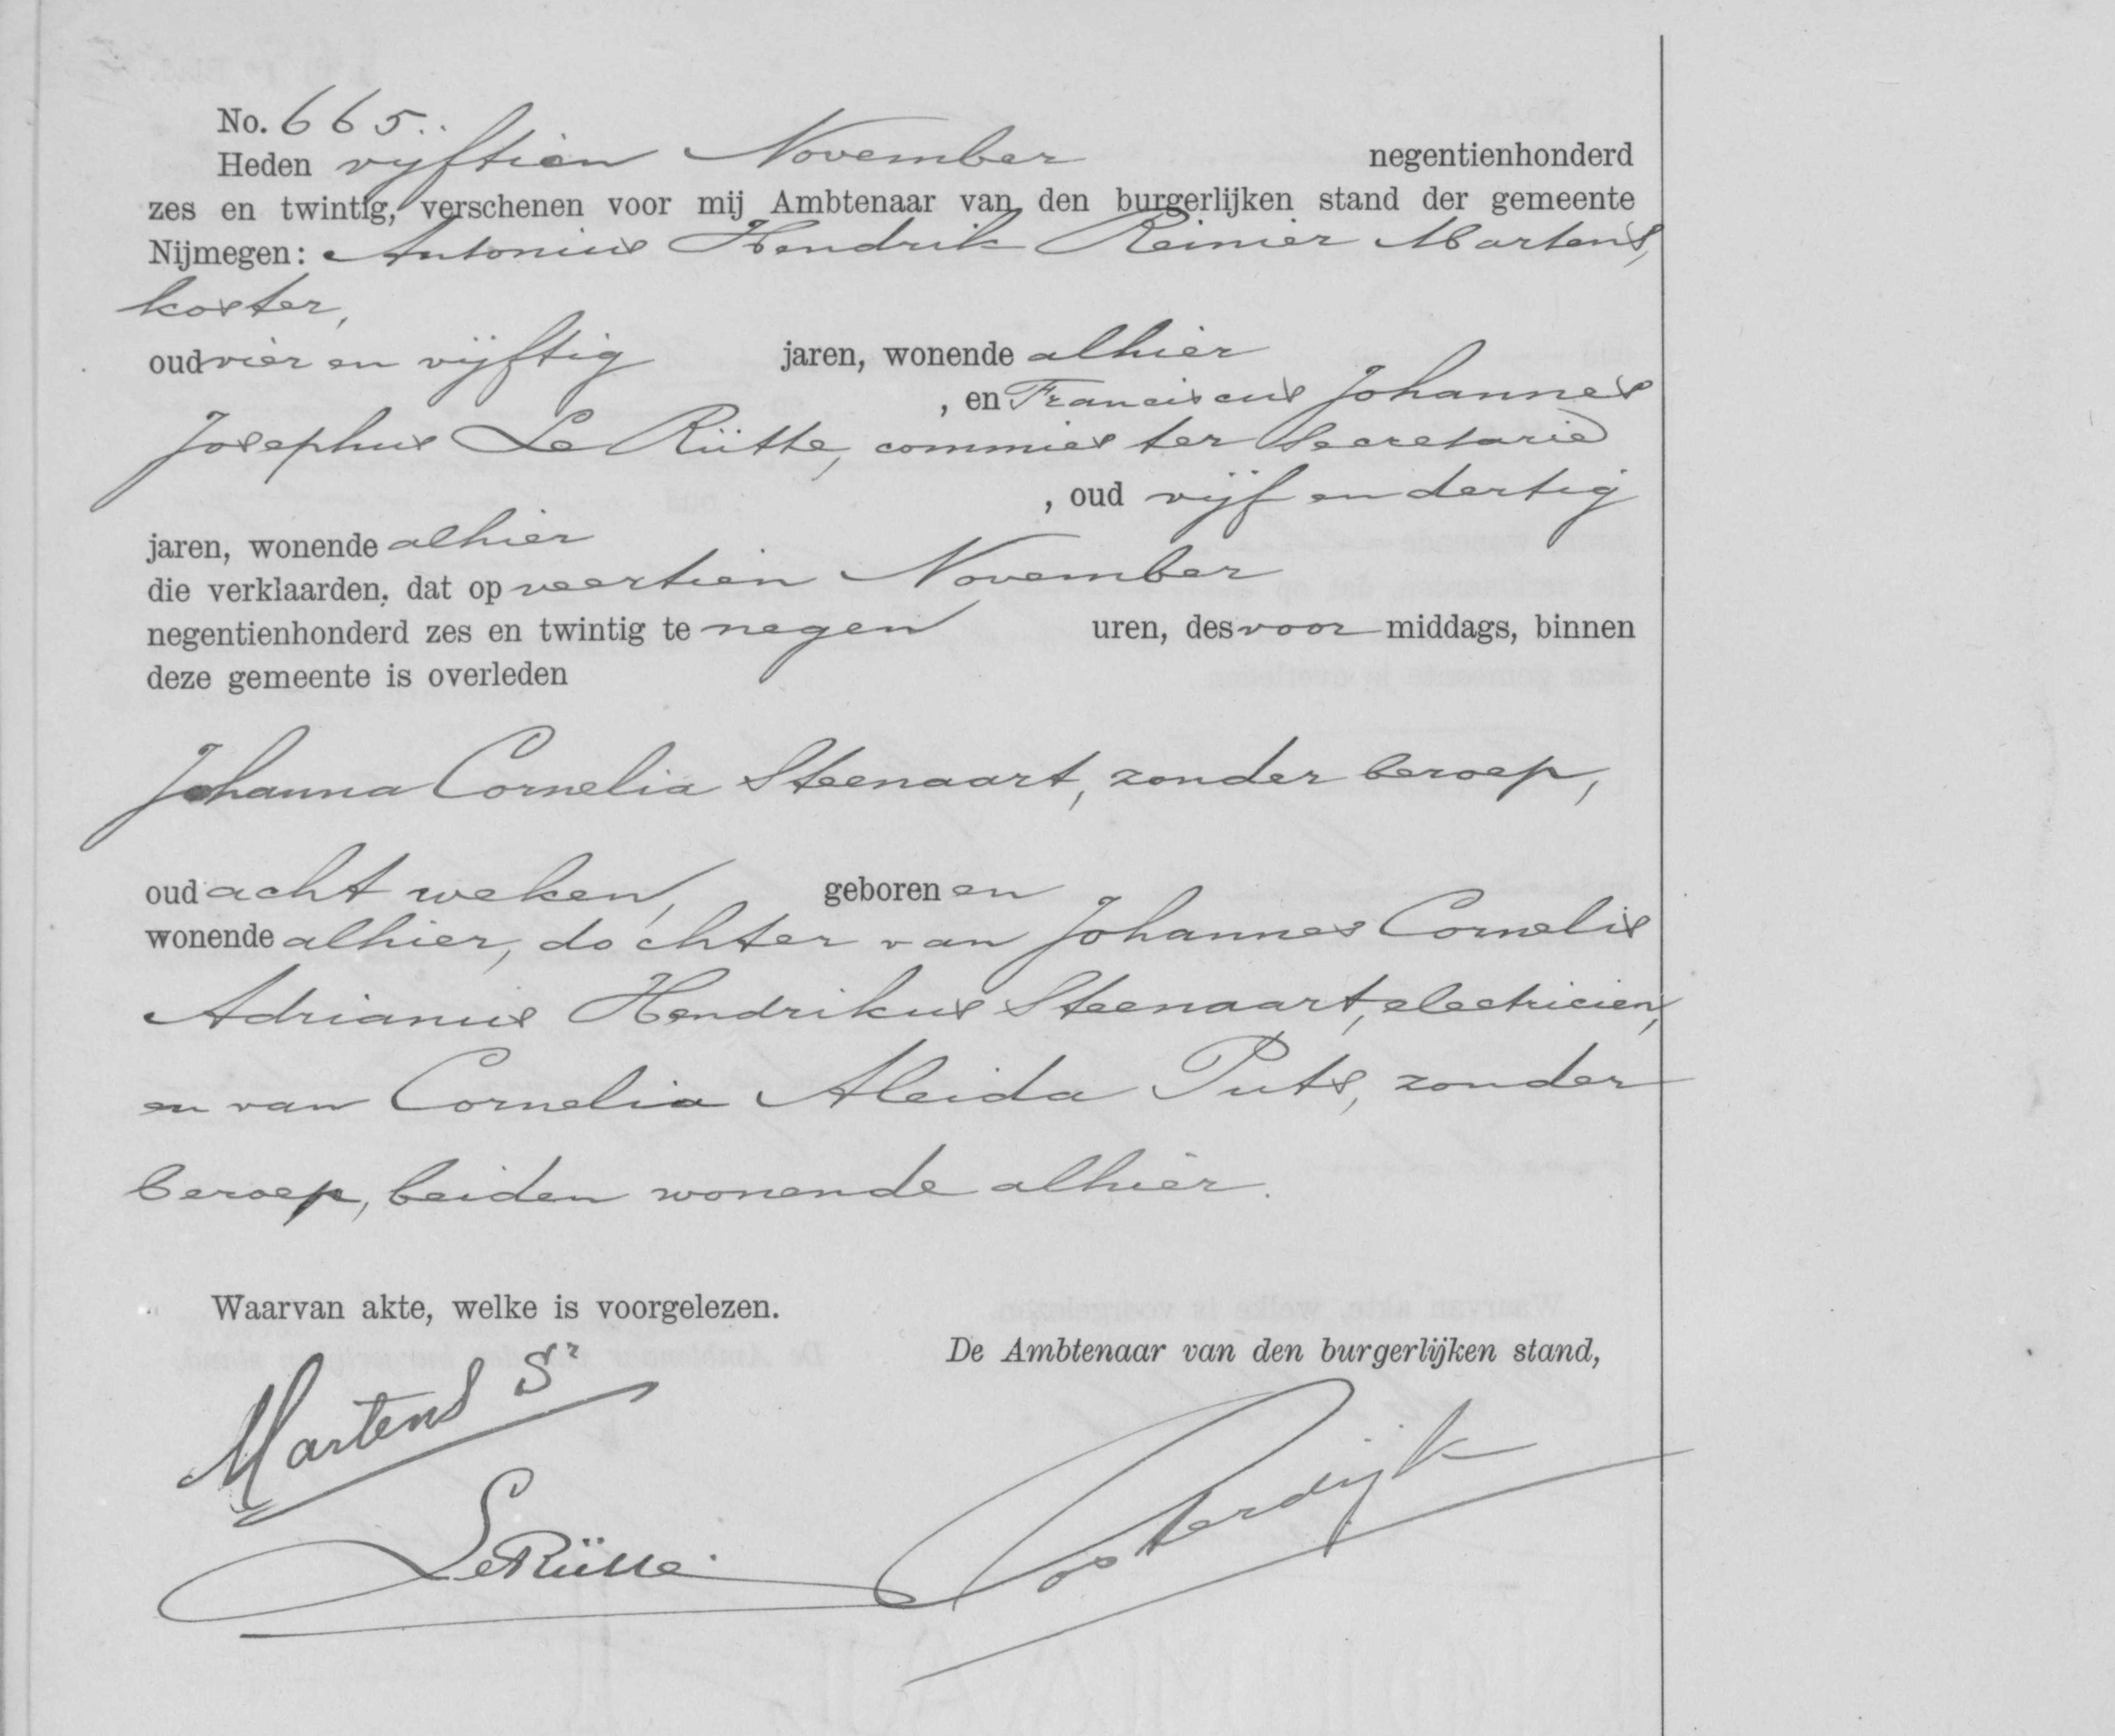 No. 665.
Heden vyftien November negentienhonderd
zes en twintig, verschenen voor mij Ambtenaar van den burgerlijken stand der gemeente
Nijmegen: Antonius Hendrik Reinier Martens,
koster,
oud vier en vijftig jaren, wonende alhier
, en Franciscus Johannes
Josephus Le Rütte, commies ter Secretarie
, oud vijf en dertig
jaren, wonende alhier
die verklaarden, dat op veertien November
negentienhonderd zes en twintig te negen uren, des voor middags, binnen
deze gemeente is overleden
Johanna Cornelia Steenaart, zonder beroep,
oud acht weken, geboren en
wonende alhier, dochter van Johannes Cornelis
Adrianus Hendrikus Steenaart, electricien,
en van Cornelia Aleida Puts, zonder
beroep, beiden wonende alhier.
Waarvan akte, welke is voorgelezen.
De Ambtenaar van den burgerlijken stand,
Martens Sr
LeRütte
Oosterdijk